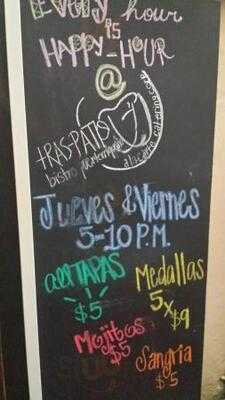 Every hour
is
HAPPY-HOUR
@
tRAS·PATIO
bistro
Jueves & Viernes
5-10 P.M.
all TAPAS
$5
Medallas
5 x $9
Mojitos
$5
Sangria
$5